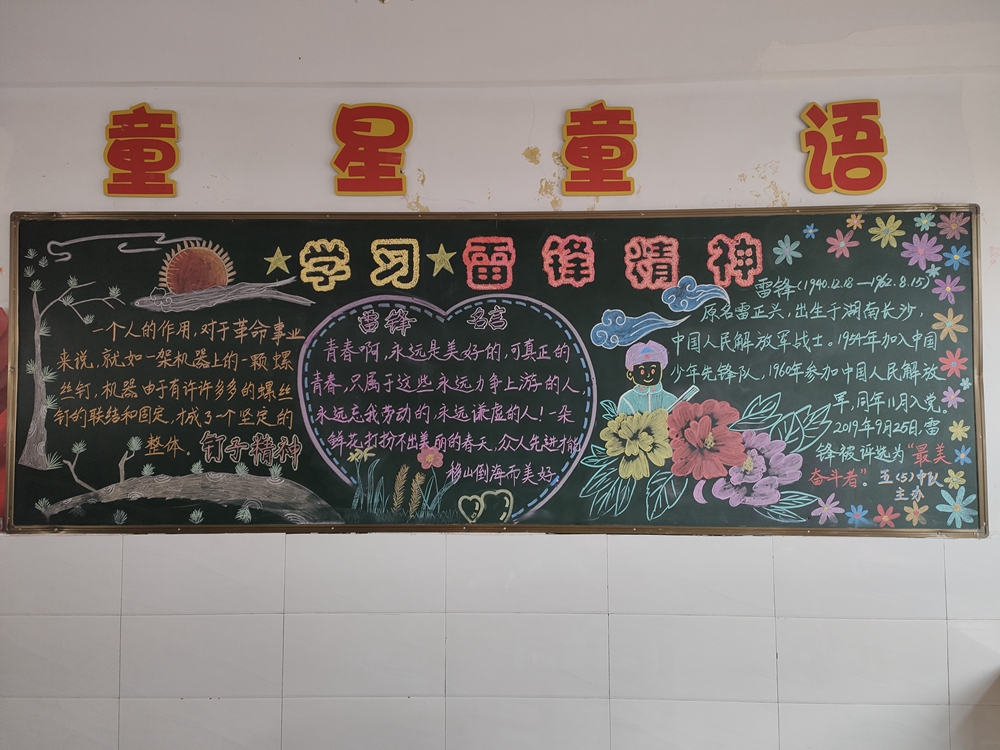 童星童语
学习雷锋精神
一个人的作用,对于革命事业
来说,就如一架机器上的一颗螺
丝钉,机器由于有许许多多的螺丝
钉的联结和固定,才成了一个坚定的
整体.钉子精神
雷锋 名言
青春啊,永远是美好的,可真正的
青春,只属于这些永远力争上游的人,
永远忘我劳动的,永远谦虚的人!一朵
鲜花打扮不出美丽的春天,众人先进才能
移山倒海而美好.
雷锋(1940.12.18—1962.8.15)
原名雷正兴,出生于湖南长沙,
中国人民解放军战士.1954年加入中国
少年先锋队,1960年参加中国人民解放
军,同年11月入党。
2019年9月25日,雷
锋被评选为"最美
奋斗者"。五(5)中队
主办